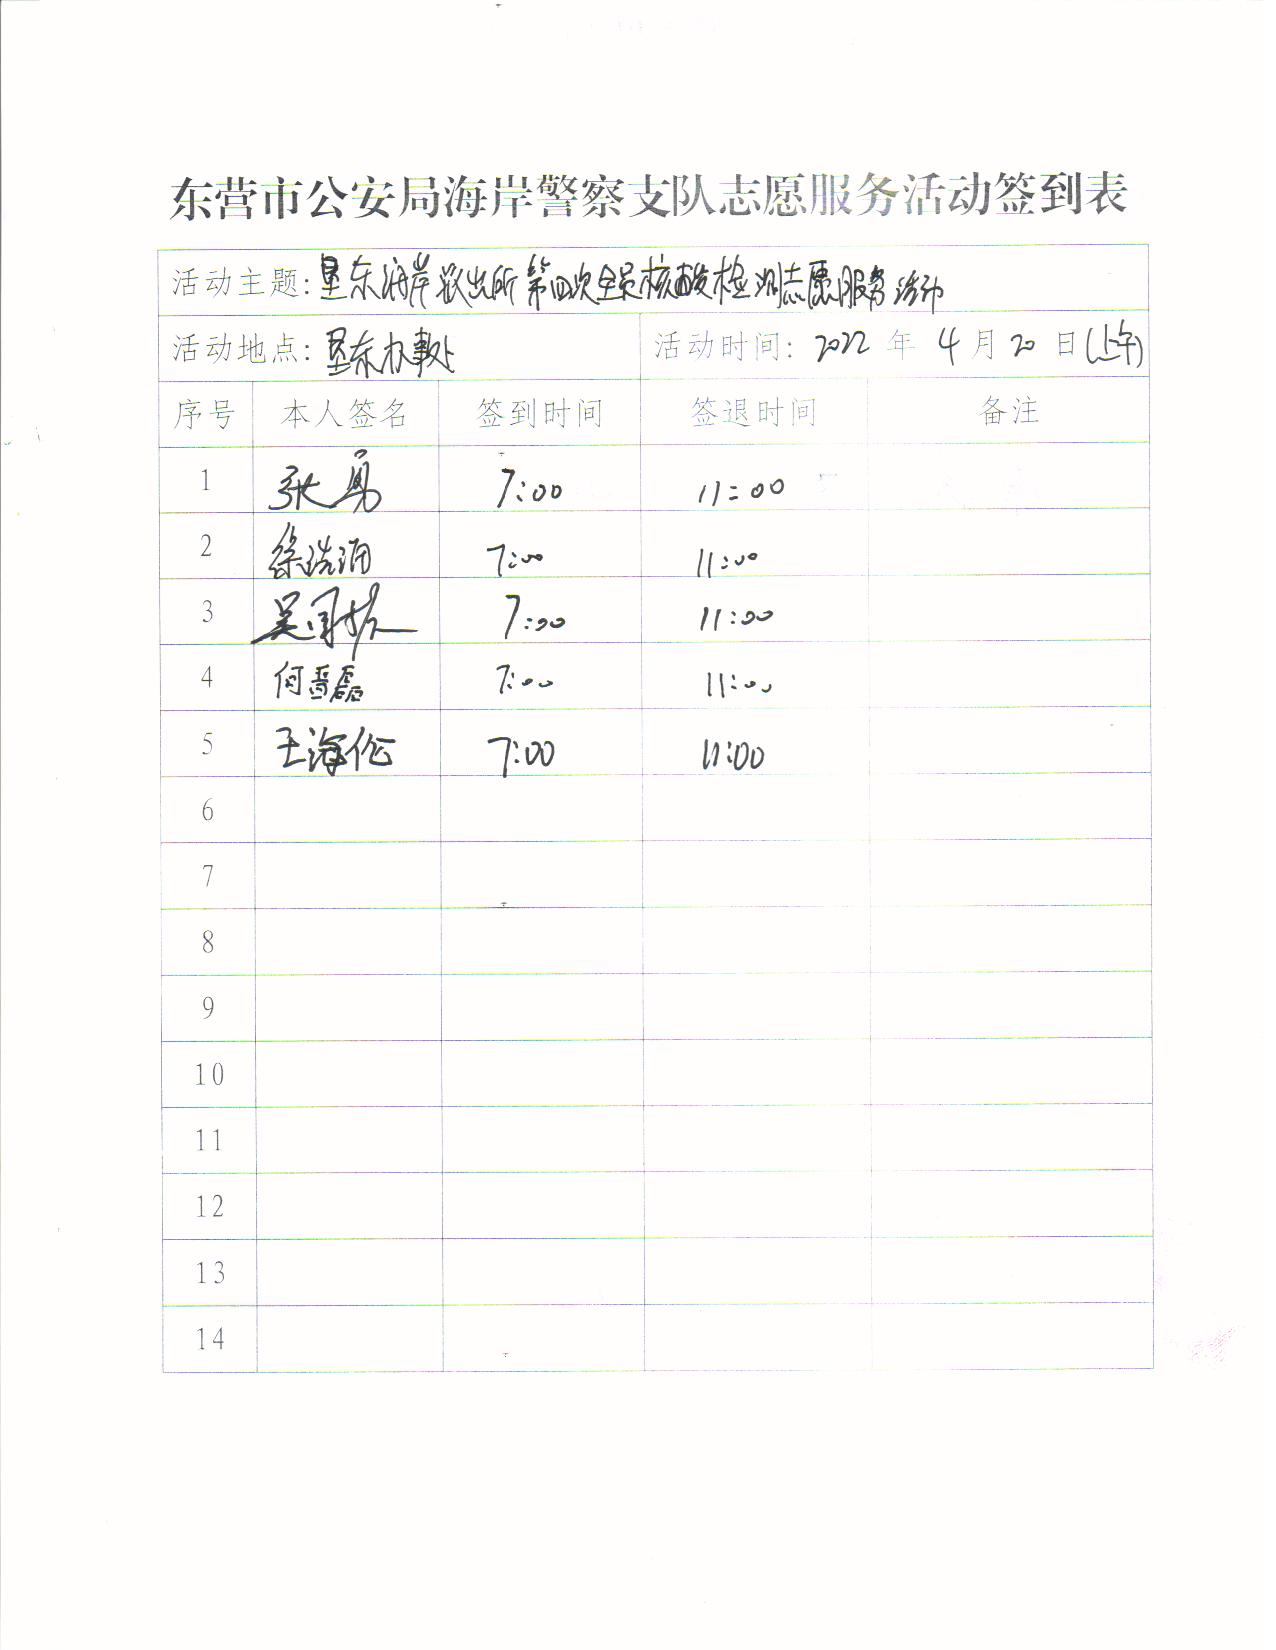 东营市公安局海岸警察支队志愿服务活动签到表
活动主题:垦东海岸派出所第四次全员核酸检测志愿服务活动
活动地点:垦东办事处 活动时间:2022年4月20日(上午)
序号 本人签名 签到时间 签退时间 备注
1 张勇 7:00 11:00
2 徐洗涌 7:00 11:00
3 吴国栋 7:00 11:00
4 何晋磊 7:00 11:00
5 王海伦 7:00 11:00
6
7
8
9
10
11
12
13
14